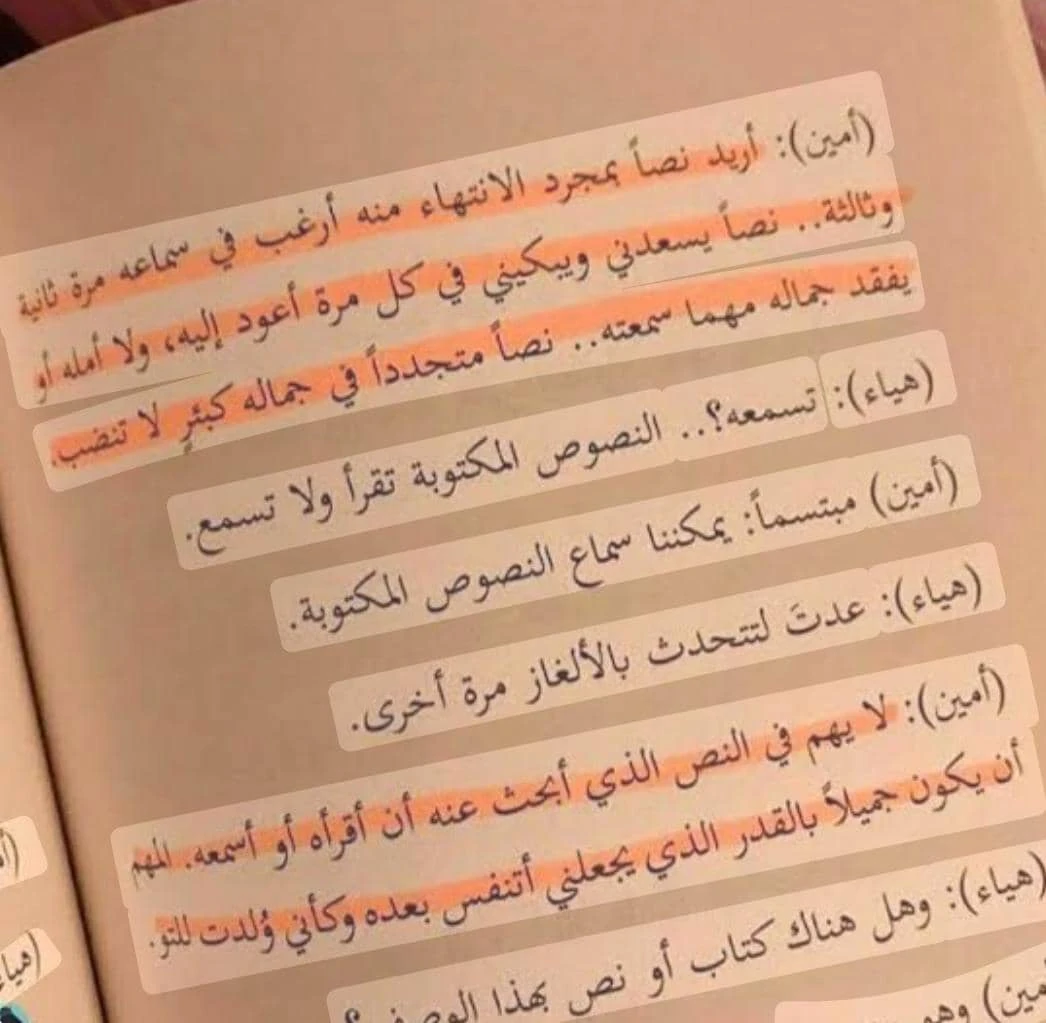 (أمين): أريد نصاً بمجرد الانتهاء منه أرغب في سماعه مرة ثانية
وثالثة.. نصاً يسعدني ويبكيني في كل مرة أعود إليه، ولا أمله أو
يفقد جماله مهما سمعته.. نصاً متجدداً في جماله كبئرٍ لا تنضب.
(هياء): تسمعه؟.. النصوص المكتوبة تقرأ ولا تسمع.
(أمين) مبتسماً: يمكننا سماع النصوص المكتوبة.
(هياء): عدتَ لتتحدث بالألغاز مرة أخرى.
(أمين): لا يهم في النص الذي أبحث عنه أن أقرأه أو أسمعه. المهم
أن يكون جميلاً بالقدر الذي يجعلني أتنفس بعده وكأني وُلدت للتو.
(هياء): وهل هناك كتاب أو نص بهذا الوصف؟